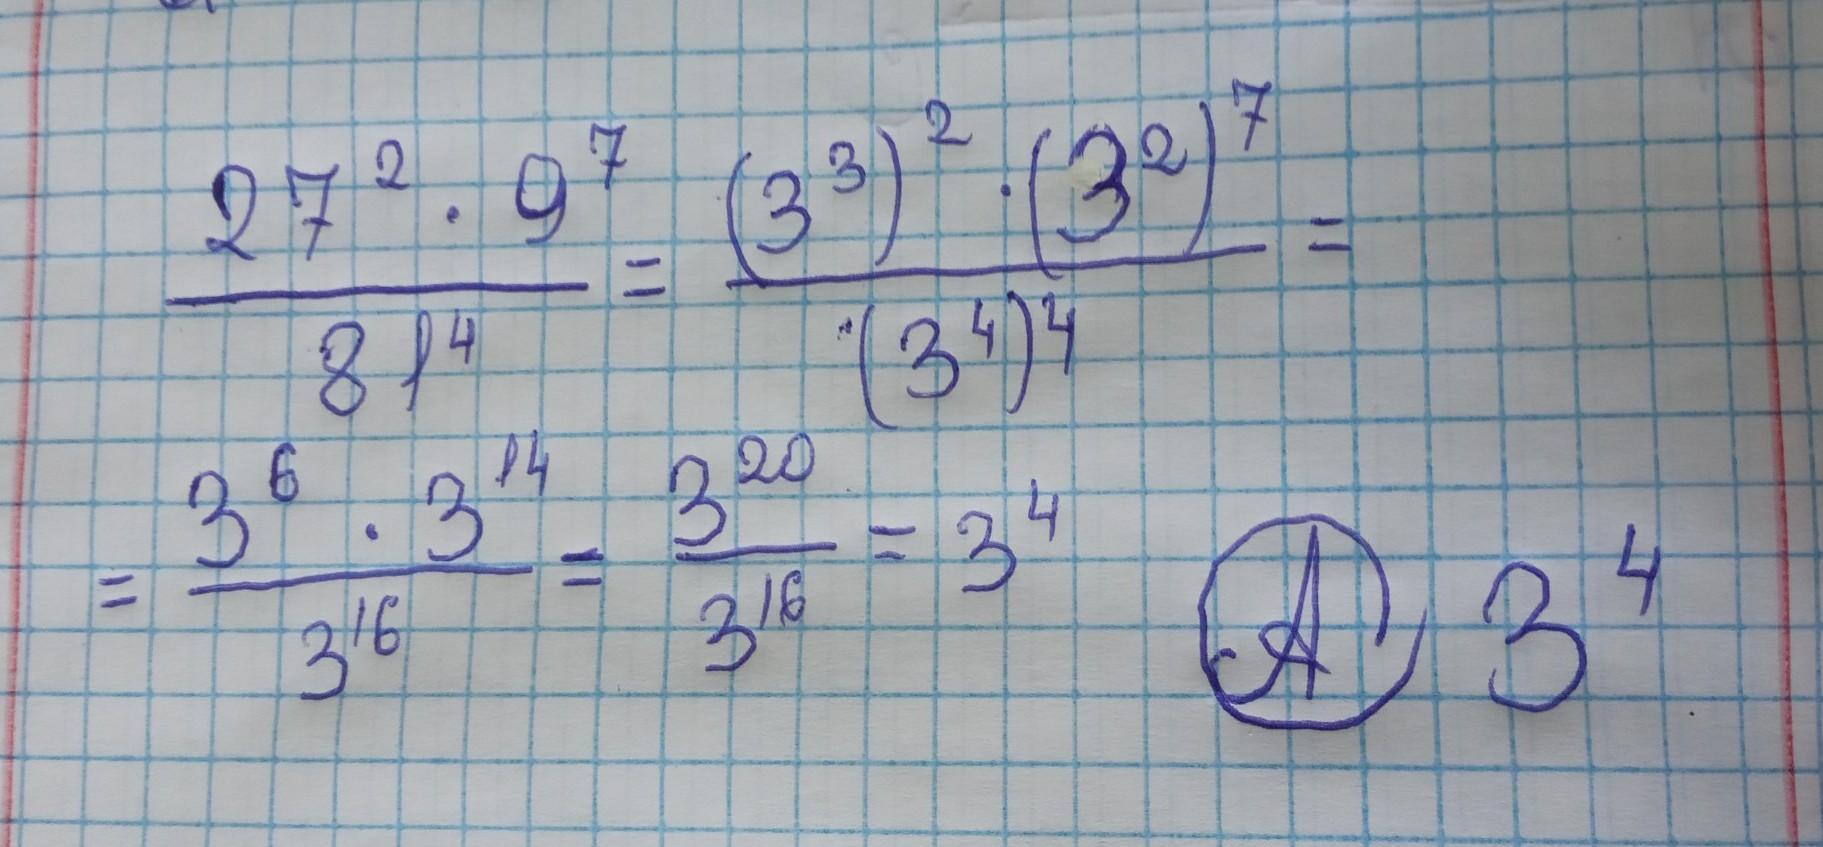 27² · 9⁷ / 81⁴ = (3³)² · (3²)⁷ / (3⁴)⁴ =
= 3⁶ · 3¹⁴ / 3¹⁶ = 3²⁰ / 3¹⁶ = 3⁴ А 3⁴